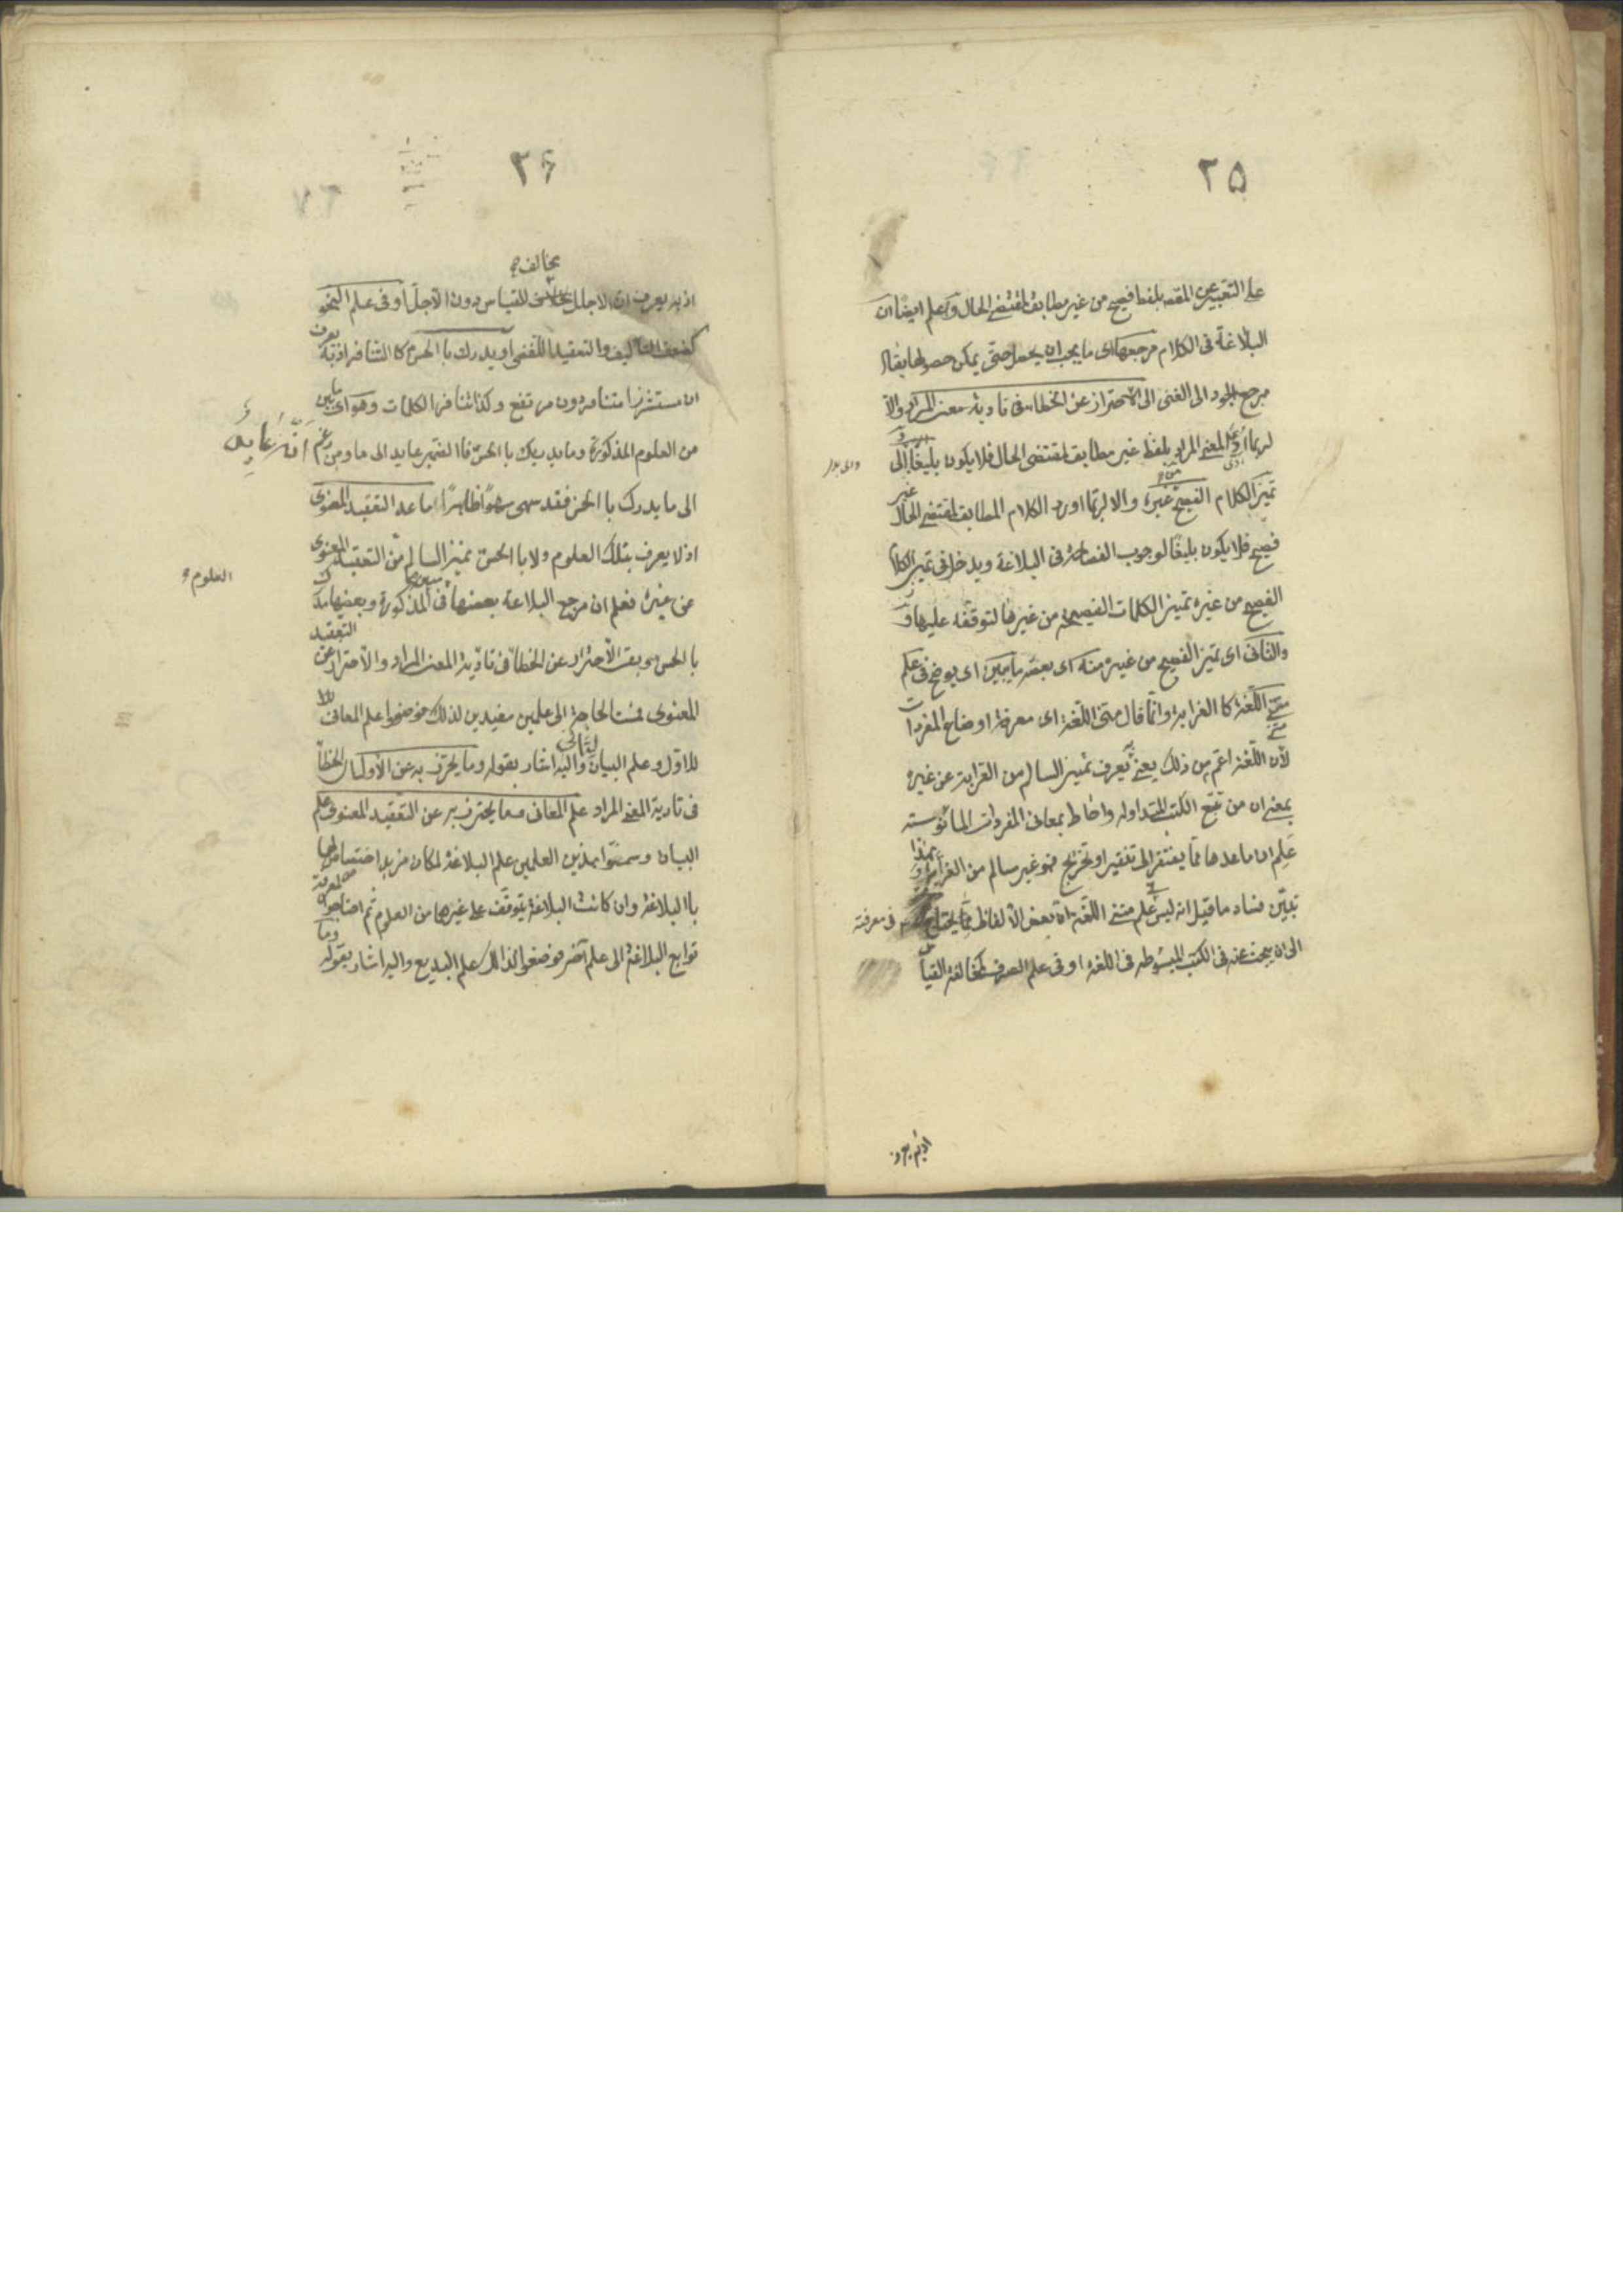 ٢٥
على التعبير عن المقصد بلفظ فصيح من غير مطابق لمقتضى الحال وعلم ايضا ان
البلاغة فى الكلام مرجعها اى ما يجب ان يحصل حتى يمكن حصولها يقال
مرجع الجود الى الغنى الى الاحتراز عن الخطاء فى تادية معنى المراد والا
لربما ادى المعنى المراد بلفظ غير مطابق لمقتضى الحال فلا يكون بليغا والى
تميز الكلام الفصيح من غيره والا لربما اورد الكلام المطابق لمقتضى الحال غير
فصيح فلا يكون بليغا لوجوب الفصاحة فى البلاغة ويدخل فى تميز الكلام
الفصيح من غيره تميز الكلمات الفصيحة من غيرها لتوقفه عليها و
والثانى اى تميز الفصيح من غيره منه اى بعضه ما يبين اى يوضح فى علم
متن اللغة كا الغرابة وانما قال متن اللغة اى معرفة اوضاع المفردات
متن
لان اللغة اعم من ذلك يعنى به يعرف تميز السالم من الغرابة عن غيره
بمعنى ان من تتبع الكتب المتداوله واحاط بمعانى المفردات المانوسته
علم ان ما عداها مما يفتقر الى تنقير او تخريج فهو غير سالم من الغرابة وبهذا
تبين فساد ما قيل انه ليس فى علم متن اللغة ان بعض الالفاظ مما يحتاج فى معرفته
الى ان يبحث عنه فى الكتب المبسوطه فى اللغة او فى علم الصرف كمخالفة القياس
اذ به يعرف
٢٦
يخالف
اذ به يعرف ان الاجلل مخالف للقياس دون الاجل او فى علم النحو
كضعف التاليف والتعقيد اللفظى او يدرك با الحس كا التنافر اذ به يعرف
ان مستشزرا متنافر دون مرتفع وكذا تنافر الكلمات وهو اى ما يبين
من العلوم المذكورة وما يدرك با الحس فا الضمير عايد الى ما ومن زعم انه عايد
الى ما يدرك با الحس فقد سهى سهوا ظاهرا ما عدا التعقيد المعنوى
اذ لا يعرف بتلك العلوم ولا با الحس تميز السالم من التعقيد المعنوى
من غيره فعلم ان مرجع البلاغة بعضها مبين فى المذكورة وبعضها مدرك
العلوم
با الحس وبقى الاحتراز عن الخطا فى تادية المعنى المراد والاحتراز عن التعقيد
المعنوى فمست الحاجة الى علمين مفيدين لذلك فوضعوا علم المعانى
للاول وعلم البيان للثانى واليه اشار بقوله وما يحترز به عن الاول اى الخطا
فى تادية المعنى المراد علم المعانى وما يحترز به عن التعقيد المعنوى علم
البيان وسموا هذين العلمين علم البلاغة لمكان مزيد اختصاص لهما
با البلاغة وان كانت البلاغة يتوقف على غيرهما من العلوم ثم احتاجوا لمعرفة
توابع البلاغة الى علم آخر فوضعوا لذالك علم البديع واليه اشار بقوله وما